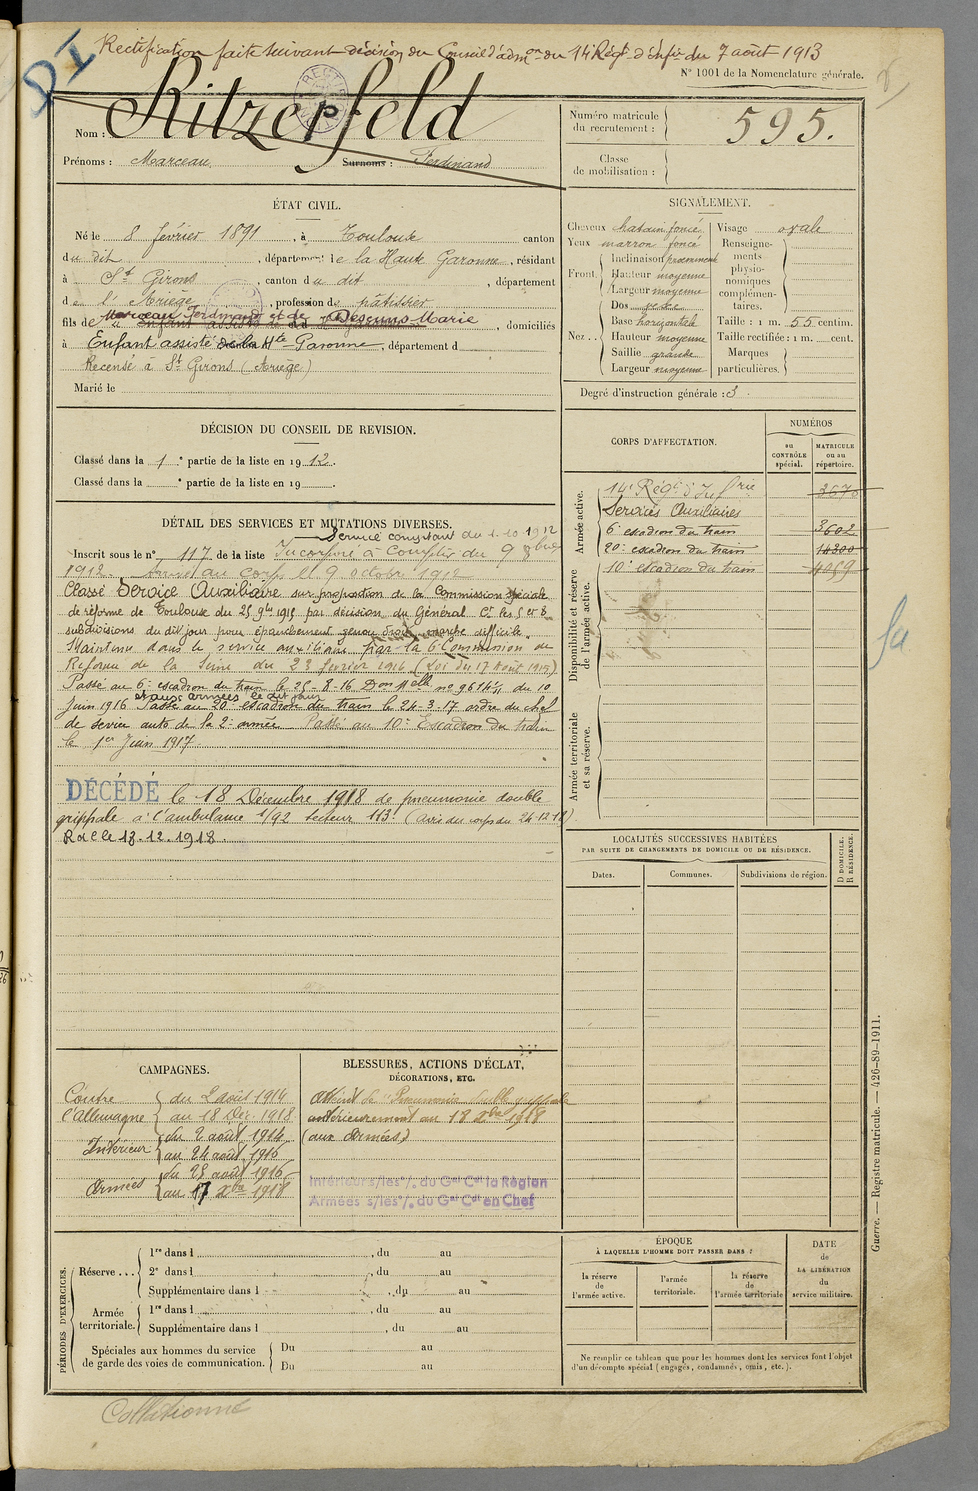 Rectification faite suivant décision du Conseil d'adm on du 14 Régt d'Infie du 7 août 1913
N° 1001 de la Nomenclature générale.
DI
Nom : Ritzepfeld
Prénoms : Marceau Surnoms : Ferdinand
Numéro matricule du recrutement : 595.
Classe de mobilisation :
ÉTAT CIVIL.
Né le 8 février 1891, à Toulouse canton
du dit, département de la Haute Garonne, résidant
à St Girons, canton du dit, département
de l'Ariège, profession de pâtissier
fils de Marceau Ferdinand et de Descuns Marie, domiciliés
à Enfant assisté de la Hte Garonne, département d
Recensé à St Girons (Ariège)
Marié le
SIGNALEMENT.
Cheveux chatain foncé
Yeux marron foncé
Front
Inclinaison proéminent
Hauteur moyenne
Largeur moyenne
Nez
Dos
Base horizontale
Hauteur moyenne
Saillie grande
Largeur moyenne
Visage ovale
Renseignements physionomiques complémentaires.
Taille : 1 m. 55 centim.
Taille rectifiée : 1 m. cent.
Marques particulières.
Degré d'instruction générale : 3
DÉCISION DU CONSEIL DE REVISION.
Classé dans la 1 e partie de la liste en 1912.
Classé dans la e partie de la liste en 19 .
CORPS D'AFFECTATION.
NUMÉROS
au CONTRÔLE spécial.
MATRICULE ou au répertoire.
Armée active.
14e Régt d'Infrie
Services Auxiliaires
6e escadron du train 3602
20e escadron du train
10e escadron du train
Disponibilité et réserve de l'armée active.
Armée territoriale et sa réserve.
DÉTAIL DES SERVICES ET MUTATIONS DIVERSES.
Service comptant du 1-10 1912
Inscrit sous le n° 117 de la liste Incorporé à compter du 9 8bre
1912. Arrivé au corps le 9 octobre 1912
Classé Service Auxiliaire sur proposition de la Commission spéciale
de réforme de Toulouse du 25 9bre 1915 par décision du Général Ct les 5 et 8
subdivisions du dit jour pour épanchement genou droit marche difficile.
Maintenu dans le service auxiliaire par la 6e Commission de
Reforme de la Seine du 23 février 1916 (Loi du 17 août 1915)
Passé au 6e escadron du train le 25-8-16 Don Mlle no 9614 du 10
et aux armées le dit jour
Juin 1916 Passé au 20e escadron du train le 24-3-17 ordre du chef
de service auto de la 2e armée Passé au 10e Escadron du train
le 1er Juin 1917.
DÉCÉDÉ le 18 Décembre 1918 de pneumonie double
grippale à l'ambulance 1/92 secteur 113 (avis du corps du 24-12-18).
R d C le 18.12.1918.
LOCALITÉS SUCCESSIVES HABITÉES
PAR SUITE DE CHANGEMENTS DE DOMICILE OU DE RÉSIDENCE.
Dates.
Communes.
Subdivisions de région.
D DOMICILE.
R RÉSIDENCE.
CAMPAGNES.
Contre l'allemagne du 2 août 1914
au 18 Déc. 1918
Intérieur du 2 août 1914
au 24 août 1916
Armées du 25 août 1916
au 17 Xbre 1918
BLESSURES, ACTIONS D'ÉCLAT,
DÉCORATIONS, ETC.
Atteint de "Pneumonie double grippale
antérieurement au 18 Xbre 1918
(aux Armées)
Intérieur s/les o/. du Gal Cdt la Région
Armées s/les o/. du Gal Cdt en Chef
PÉRIODES D'EXERCICES.
Réserve ...
1re dans l , du au
2e dans l , du au
Supplémentaire dans l , du au
Armée territoriale.
1re dans l , du au
Supplémentaire dans l , du au
Spéciales aux hommes du service de garde des voies de communication.
Du au
Du au
ÉPOQUE
À LAQUELLE L'HOMME DOIT PASSER DANS :
la réserve de l'armée active.
l'armée territoriale.
la réserve de l'armée territoriale
DATE de LA LIBÉRATION du service militaire.
Ne remplir ce tableau que pour les hommes dont les services font l'objet
d'un décompte spécial (engagés, condamnés, omis, etc.).
Guerre. — Registre matricule. — 426-89-1911.
Collationné